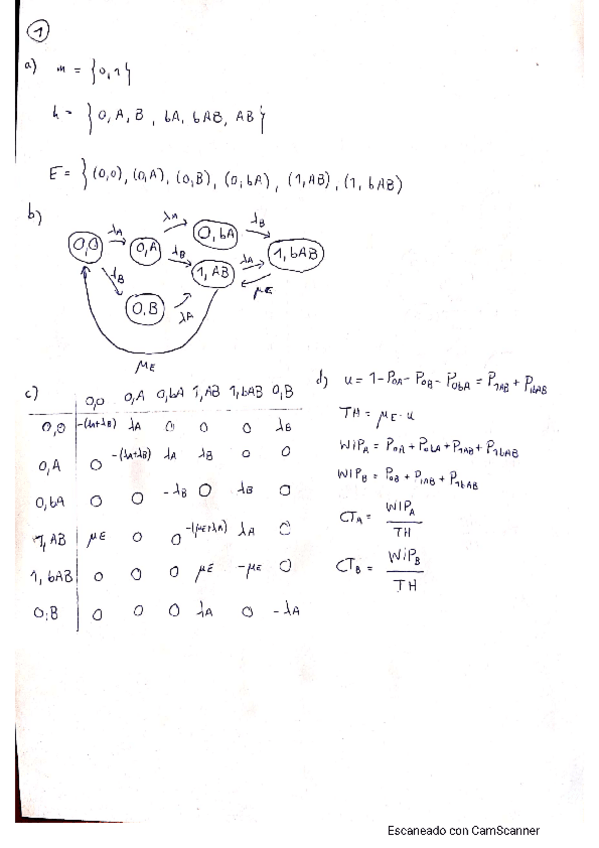 1
a) m = {0,1}
h = {0, A, B, bA, bAB, AB}
E = {(0,0), (0,A), (0,B), (0,bA), (1,AB), (1,bAB)
b)
0,0 λA 0,A λA 0,bA λB 1,bAB
λB 0,B λA 1,AB λB λA μE
μE
c)
0,0 0,A 0,bA 1,AB 1,bAB 0,B
0,0 -(λA+λB) λA 0 0 0 λB
0,A 0 -(λA+λB) λA λB 0 0
0,bA 0 0 -λB 0 λB 0
1,AB μE 0 0 -(μE+λA) λA 0
1,bAB 0 0 0 μE -μE 0
0,B 0 0 0 λA 0 -λA
d) u = 1-P0A-P0B-P0bA = P1AB + P1bAB
TH = μE · u
WIPA = P0A + P0bA + P1AB + P1bAB
WIPB = P0B + P1AB + P1bAB
CTA = WIPA / TH
CTB = WIPB / TH
Escaneado con CamScanner